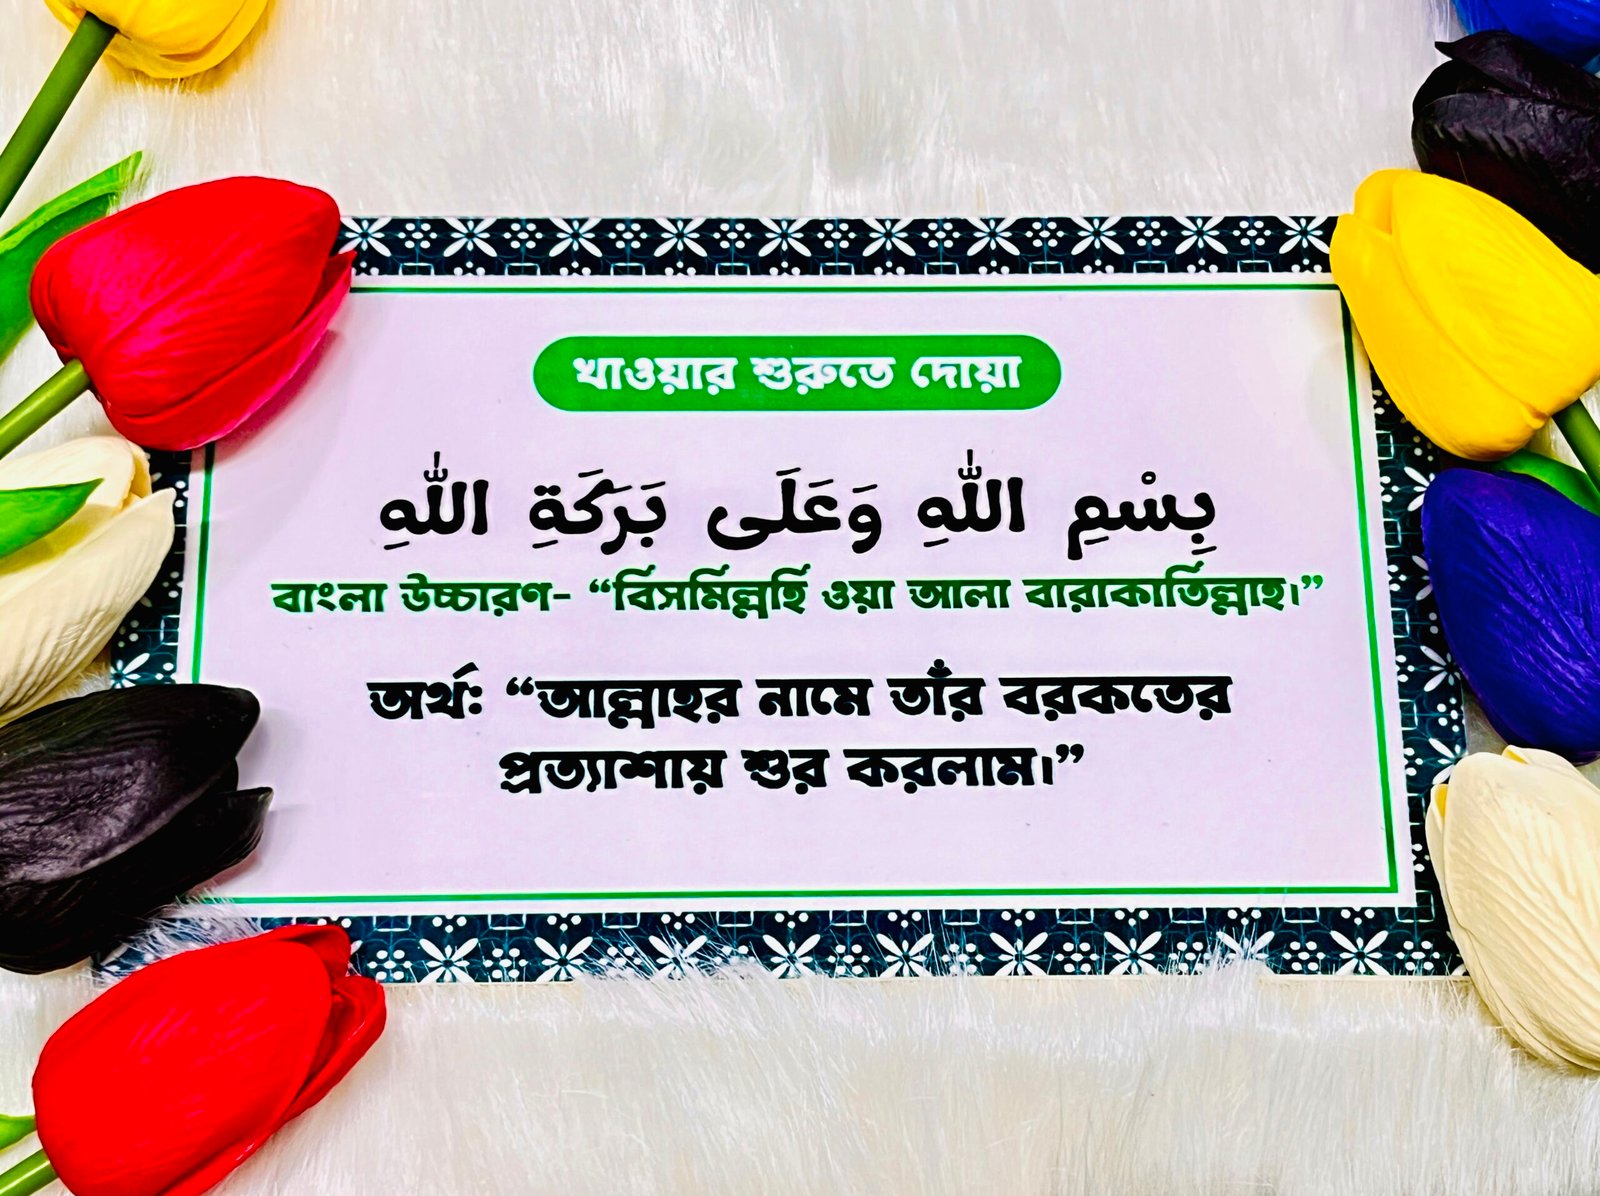 খাওয়ার শুরুতে দোয়া
بِسْمِ اللّٰهِ وَعَلَى بَرَكَةِ اللّٰهِ
বাংলা উচ্চারণ- “বিসমিল্লহি ওয়া আলা বারাকাতিল্লাহ।”
অর্থ: “আল্লাহর নামে তাঁর বরকতের
প্রত্যাশায় শুর করলাম।”